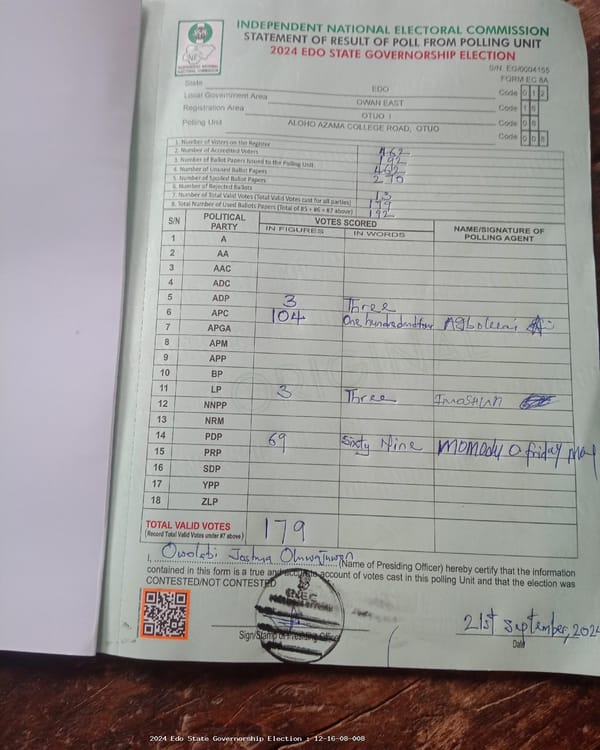 INDEPENDENT NATIONAL ELECTORAL COMMISSION
STATEMENT OF RESULT OF POLL FROM POLLING UNIT
2024 EDO STATE GOVERNORSHIP ELECTION
S/N EG/0004155
FORM EC 8A
State EDO Code 012
Local Government Area OWAN EAST Code 16
Registration Area OTUO I Code 08
Polling Unit ALOHO AZAMA COLLEGE ROAD, OTUO Code 008
1. Number of Voters on the Register 462
2. Number of Accredited Voters 192
3. Number of Ballot Papers Issued to the Polling Unit 462
4. Number of Unused Ballot Papers 270
5. Number of Spoiled Ballot Papers
6. Number of Rejected Ballots 13
7. Number of Total Valid Votes (Total Valid Votes cast for all parties) 179
8. Total Number of Used Ballots Papers (Total of #5 + #6 + #7 above) 192
S/N POLITICAL PARTY VOTES SCORED NAME/SIGNATURE OF POLLING AGENT
IN FIGURES IN WORDS
1 A
2 AA
3 AAC
4 ADC
5 ADP 3 Three
6 APC 104 One hundred and four
7 APGA
8 APM
9 APP
10 BP
11 LP 3 Three
12 NNPP
13 NRM
14 PDP 69 Sixty Nine Momody O friday
15 PRP
16 SDP
17 YPP
18 ZLP
TOTAL VALID VOTES 179
(Record Total Valid Votes under #7 above)
I, Owolabi Joshua (Name of Presiding Officer) hereby certify that the information
contained in this form is a true and accurate account of votes cast in this polling Unit and that the election was
CONTESTED/NOT CONTESTED
INEC
Sign/Stamp of Presiding Officer
21st September, 2024
Date
2024 Edo State Governorship Election : 12-16-08-008